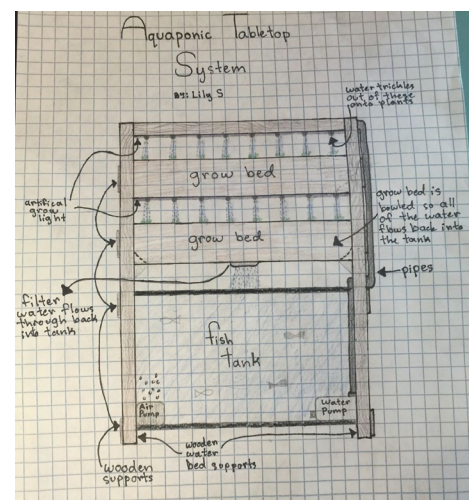 Aquaponic Tabletop
System
By: Lily S
water trickles
out of these
onto plants
grow bed
artifical
grow
light
grow bed is
bowled so all
of the water
flows back into
the tank
grow bed
pipes
filter
water flows
through back
into tank
fish
tank
Air
Pump
Water
Pump
wooden
supports
wooden
water
bed supports